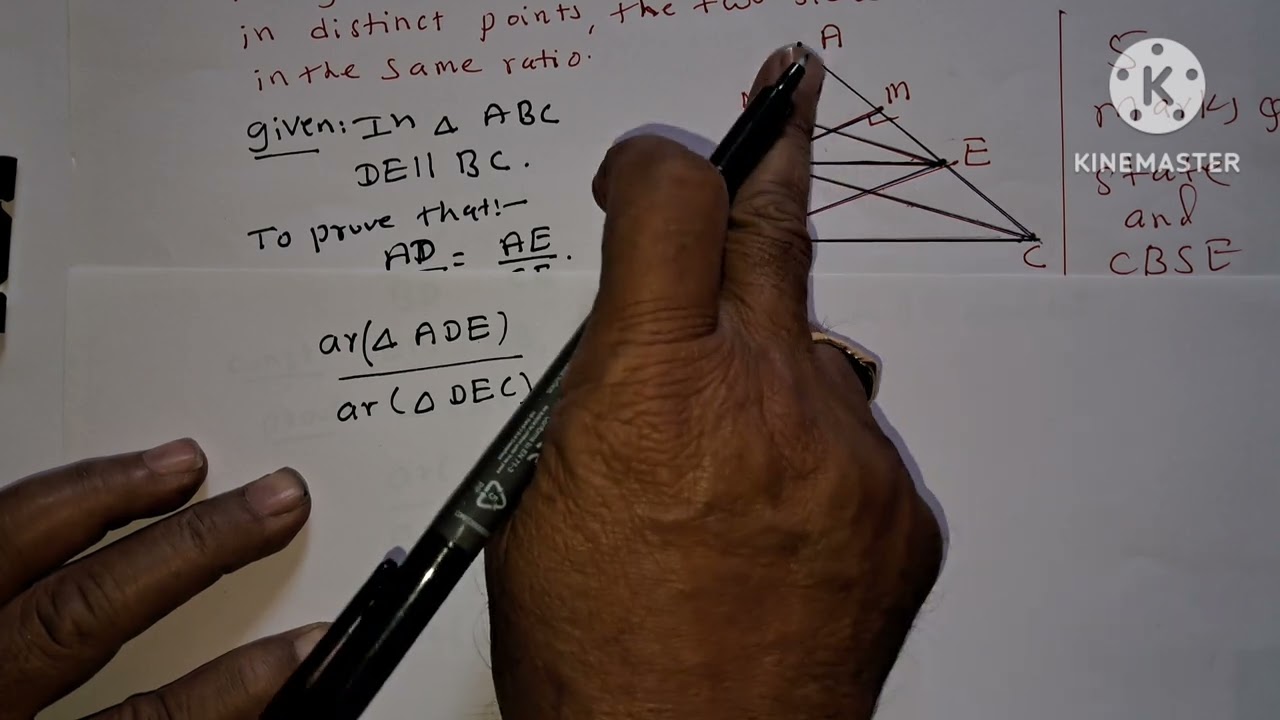 in distinct points, the two
in the same ratio.
given: In Δ ABC
DE || BC.
To prove that:-
AD = AE.
ar(Δ ADE)
ar(Δ DEC)
A
M
E
C
5
marks
state
and
CBSE
KINEMASTER